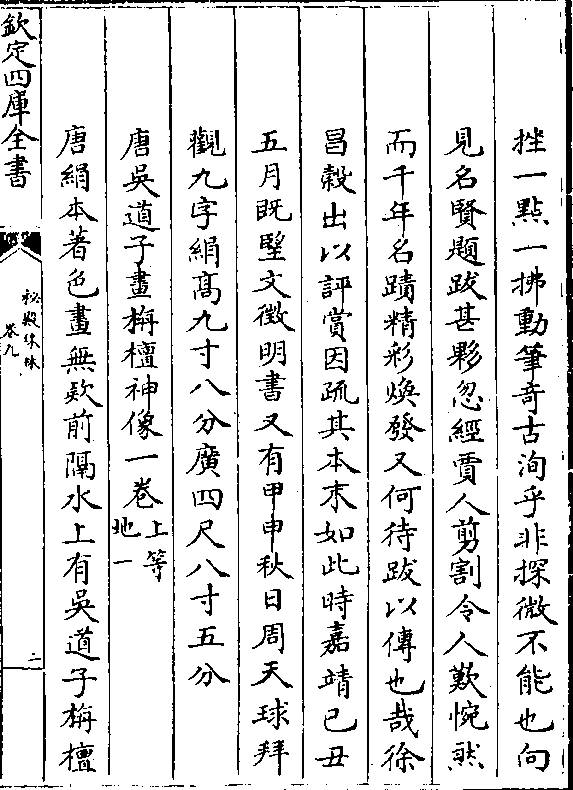 挫一點一拂動筆奇古洵乎非探微不能也向
見名賢題跋甚夥忽經賈人剪割令人歎惋然
而千年名蹟精彩煥發又何待跋以傳也哉徐
昌榖出以評賞因疏其本末如此時嘉靖己丑
五月既朢文徴明書又有甲申秋日周天球拜
觀九字絹髙九寸八分廣四尺八寸五分
唐吳道子畫栴檀神像一巻上等
地一
唐絹本著色畫無欵前隔水上有吳道子栴檀
欽定四庫全書
祕殿珠林
卷九
二